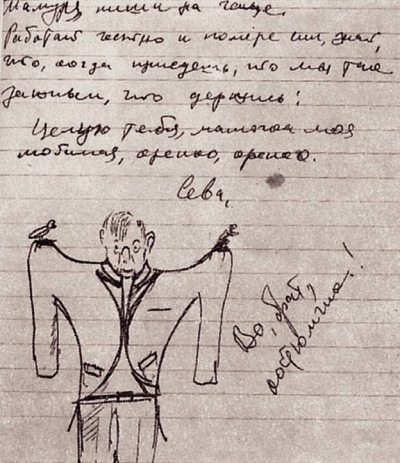 Мамуля пиши чаще.
Работай честно и помере сил, знай,
что, когда приедешь, что мы так
заживем, что держись!
Целую тебя, мамочка моя
любимая, крепко, крепко.
Сева,
Во, брат,
костюмчик..!